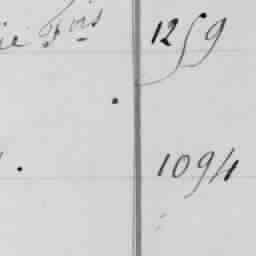 ie Fois 1259
1094